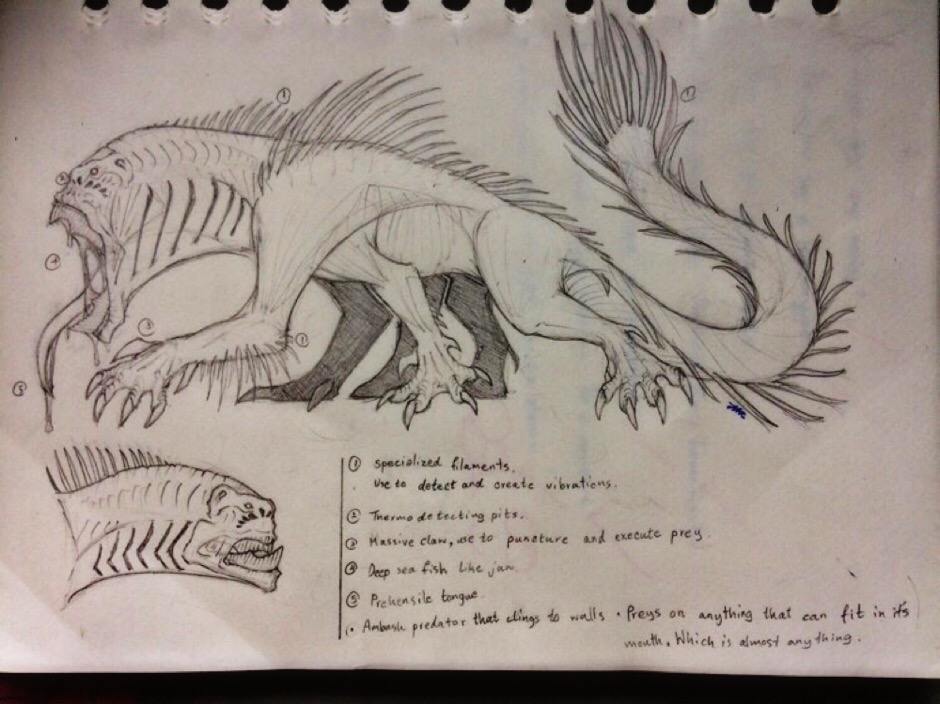 ①
①
②
④
③
①
⑤
① specialized filaments.
. Use to detect and create vibrations.
② Thermo detecting pits.
③ Massive claw, use to puncture and execute prey.
④ Deep sea fish like jaw
⑤ Prehensile tongue.
(• Ambush predator that clings to walls • Preys on anything that can fit in it's
mouth. Which is almost anything.